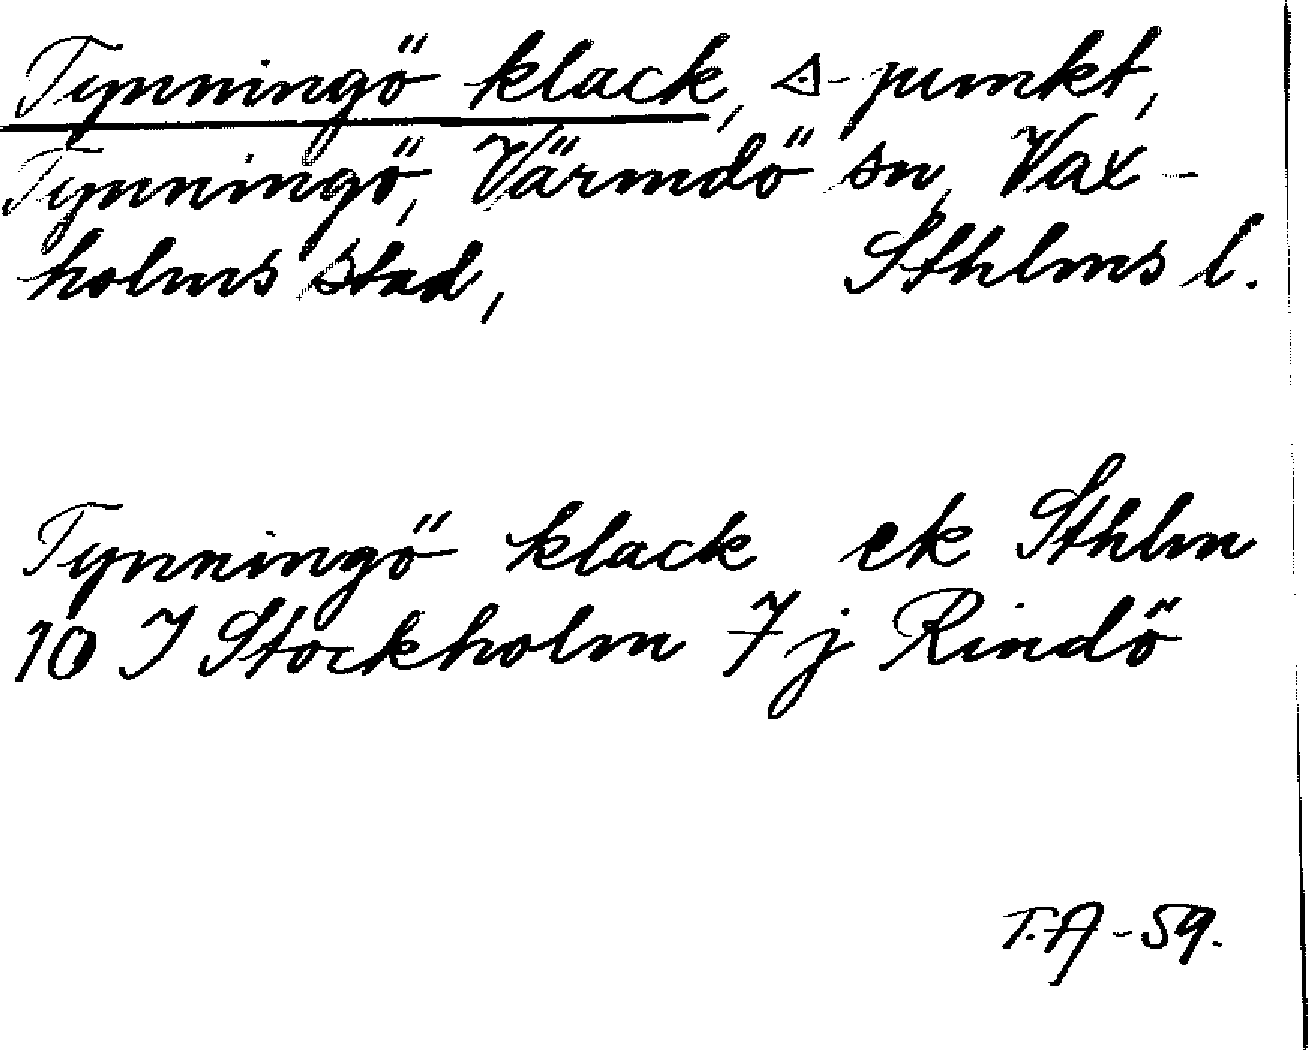 Tynningö klack, △-punkt,
Tynningö, Värmdö sn, Vax-
holms stad, Sthlms l.
Tynningö klack ek Sthlm
10 I Stockholm 7j Rindö
T.A-59.